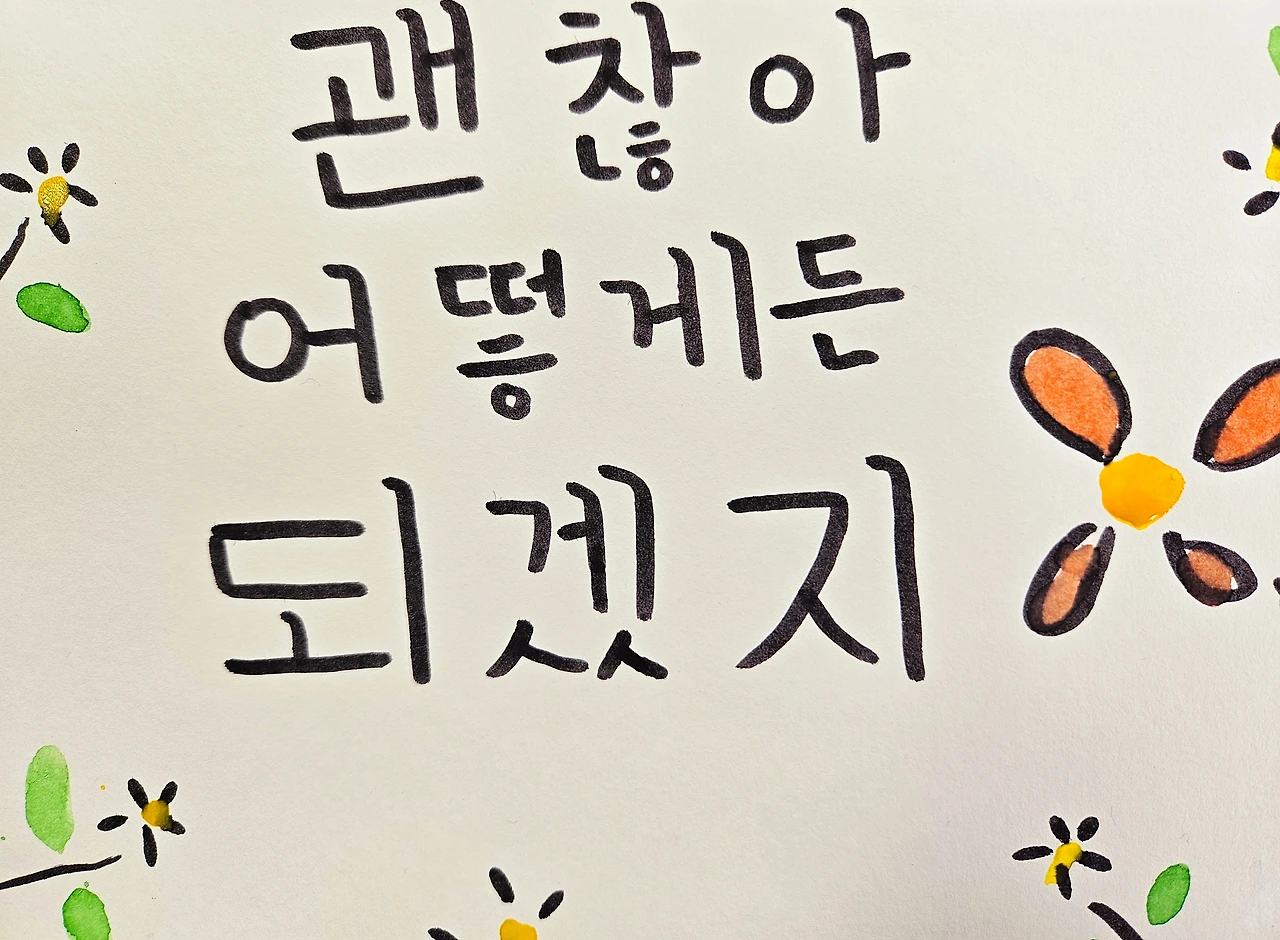 괜찮아
어떻게든
되겠지